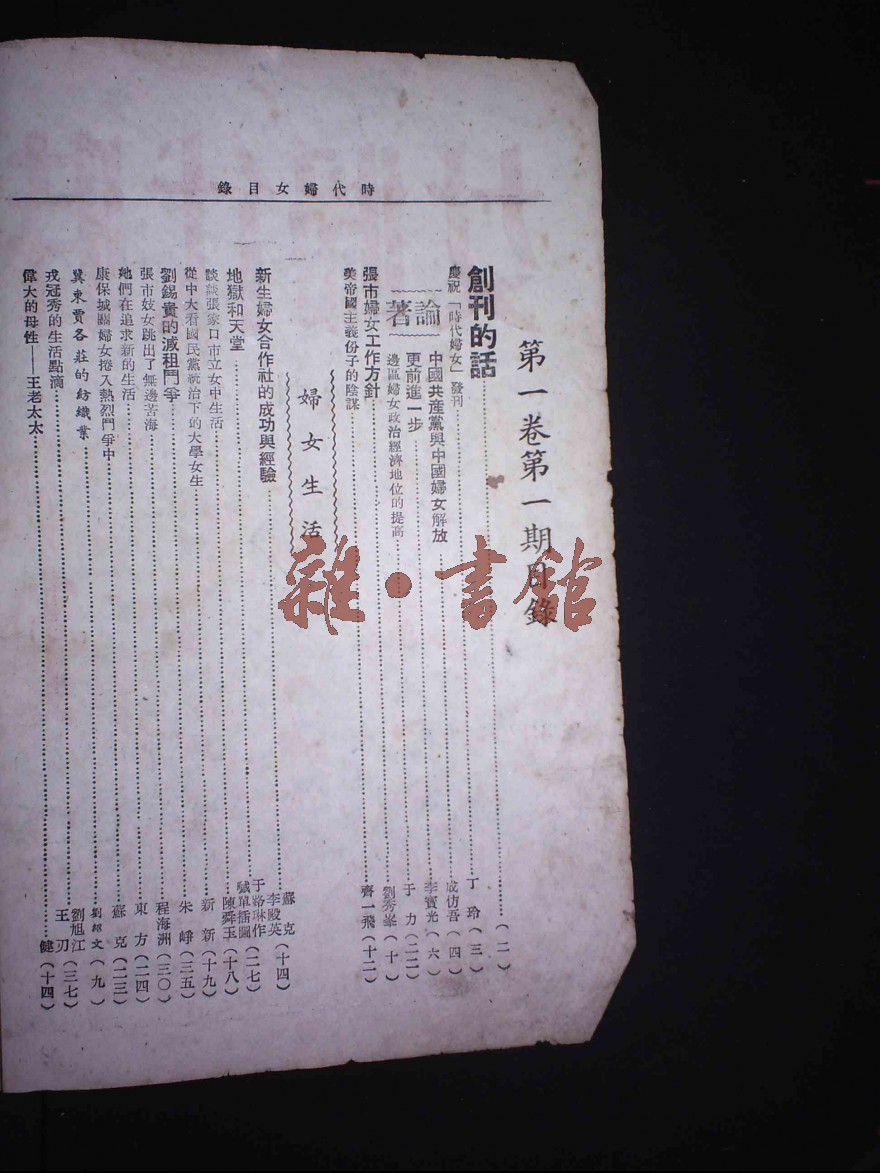 時代婦女目錄
第一卷第一期目錄
創刊的話……(二)
慶祝「時代婦女」發刊……丁玲(三)
論著
中國共產黨與中國婦女解放……成仿吾(四)
更前進一步……李寶光(六)
邊區婦女政治經濟地位的提高……于力(二二)
張市婦女工作方針……劉秀峯(十)
美帝國主義份子的陰謀……齊一飛(十二)
婦女生活
新生婦女合作社的成功與經驗……蘇克 李毆英(十四)
地獄和天堂……于路琳作 單插圖(二七)
談談張家口市立女中生活……陳舜玉(十八)
從中大看國民黨統治下的大學女生……新新(十九)
劉錫貴的減租鬥爭……朱崢(三五)
張市妓女跳出了無邊苦海……程海洲(三〇)
她們在追求新的生活……東方(二四)
康保城關婦女捲入熱烈鬥爭中……蘇克(二三)
冀東賈各莊的紡織業……劉邦文(九)
戎冠秀的生活點滴……劉旭江 王刃(三七)
偉大的母性——王老太太……健(十四)
雜·書館